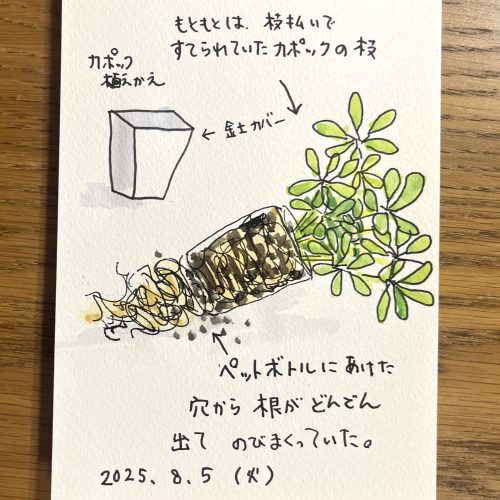 もともとは、枝払いで
すてられていたカポックの枝
カポック
植えかえ
←鉢カバー
ペットボトルにあけた
穴から 根が どんどん
出て のびまくっていた。
2025.8.5 (火)